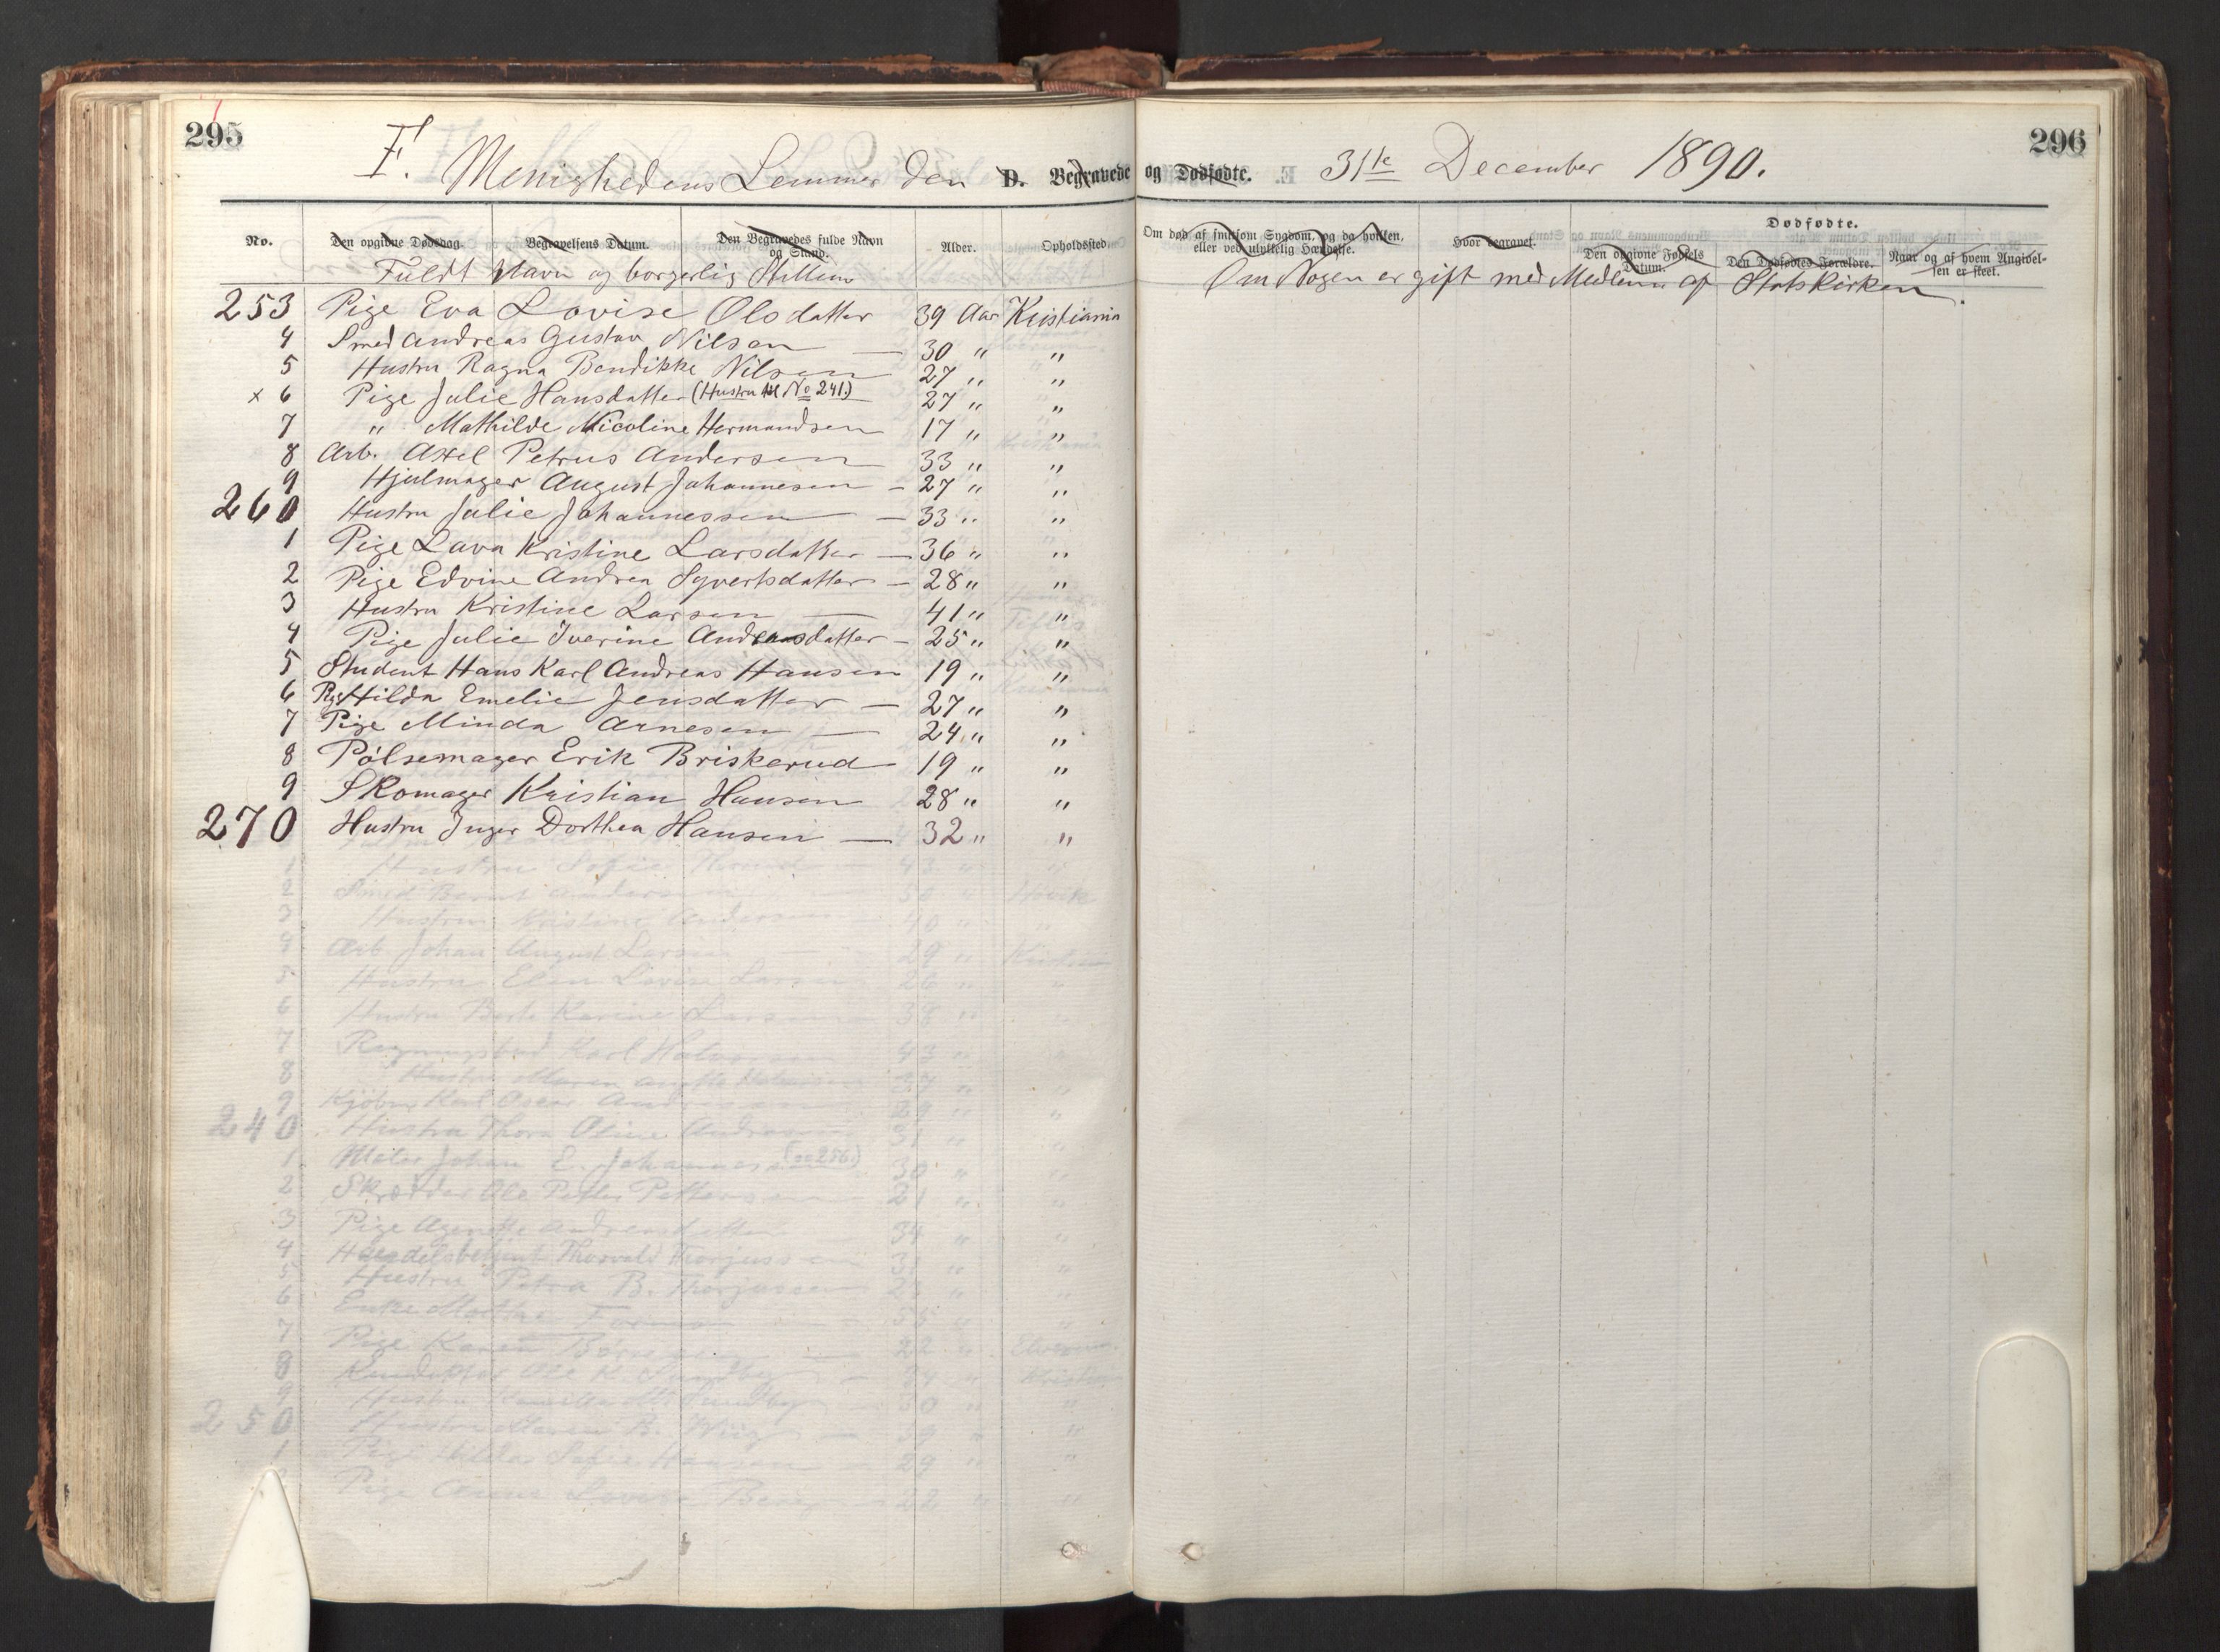 295
296
F. Menighedens Lemmer den 31te December 1890.
D. Begravede og Dødfødte.
Dødfødte.
No.
Den opgivne Dødsdag.
Begravelsens Datum.
Den Begravedes fulde Navn og Stand.
Alder.
Opholdssted.
Om død af smitsom Sygdom, og da hvilken, eller ved ulykkelig Hændelse.
Hvor begravet.
Den opgivne Fødsels Datum.
Den Dødfødtes Forældre.
Naar og af hvem Angivelsen er skeet.
Fuldt Navn og borgerlig Stilling
Om Nogen er gift med Medlem af Statskirken.
253 Pige Eva Lovise Olsdatter 39 Aar Kristiania
4 Smed Andreas Gustav Nilsen — 30 " "
5 Hustru Ragna Bendikke Nilsen 27 " "
x 6 Pige Julie Hansdatter (Hustru til No 241) 27 " "
7 " Mathilde Nicoline Hermandsen 17 " "
8 Arb. Axel Petrus Andersen 33 " "
9 Hjulmager August Johannesen — 27 " "
260 Hustru Julie Johannessen — 33 " "
1 Pige Lava Kristine Larsdatter — 36 " "
2 Pige Edvine Andrea Syvertsdatter — 28 " "
3 Hustru Kristine Larsen — 41 " "
4 Pige Julie Iverine Andreasdatter — 25 " "
5 Student Hans Karl Andreas Hansen 19 " "
6 Pige Hilda Emelie Jensdatter — 27 " "
7 Pige Minda Arnesen — 24 " "
8 Pølsemager Erik Briskerud 19 " "
9 Skomager Kristian Hansen 28 " "
270 Hustru Inger Dorthea Hansen — 32 " "